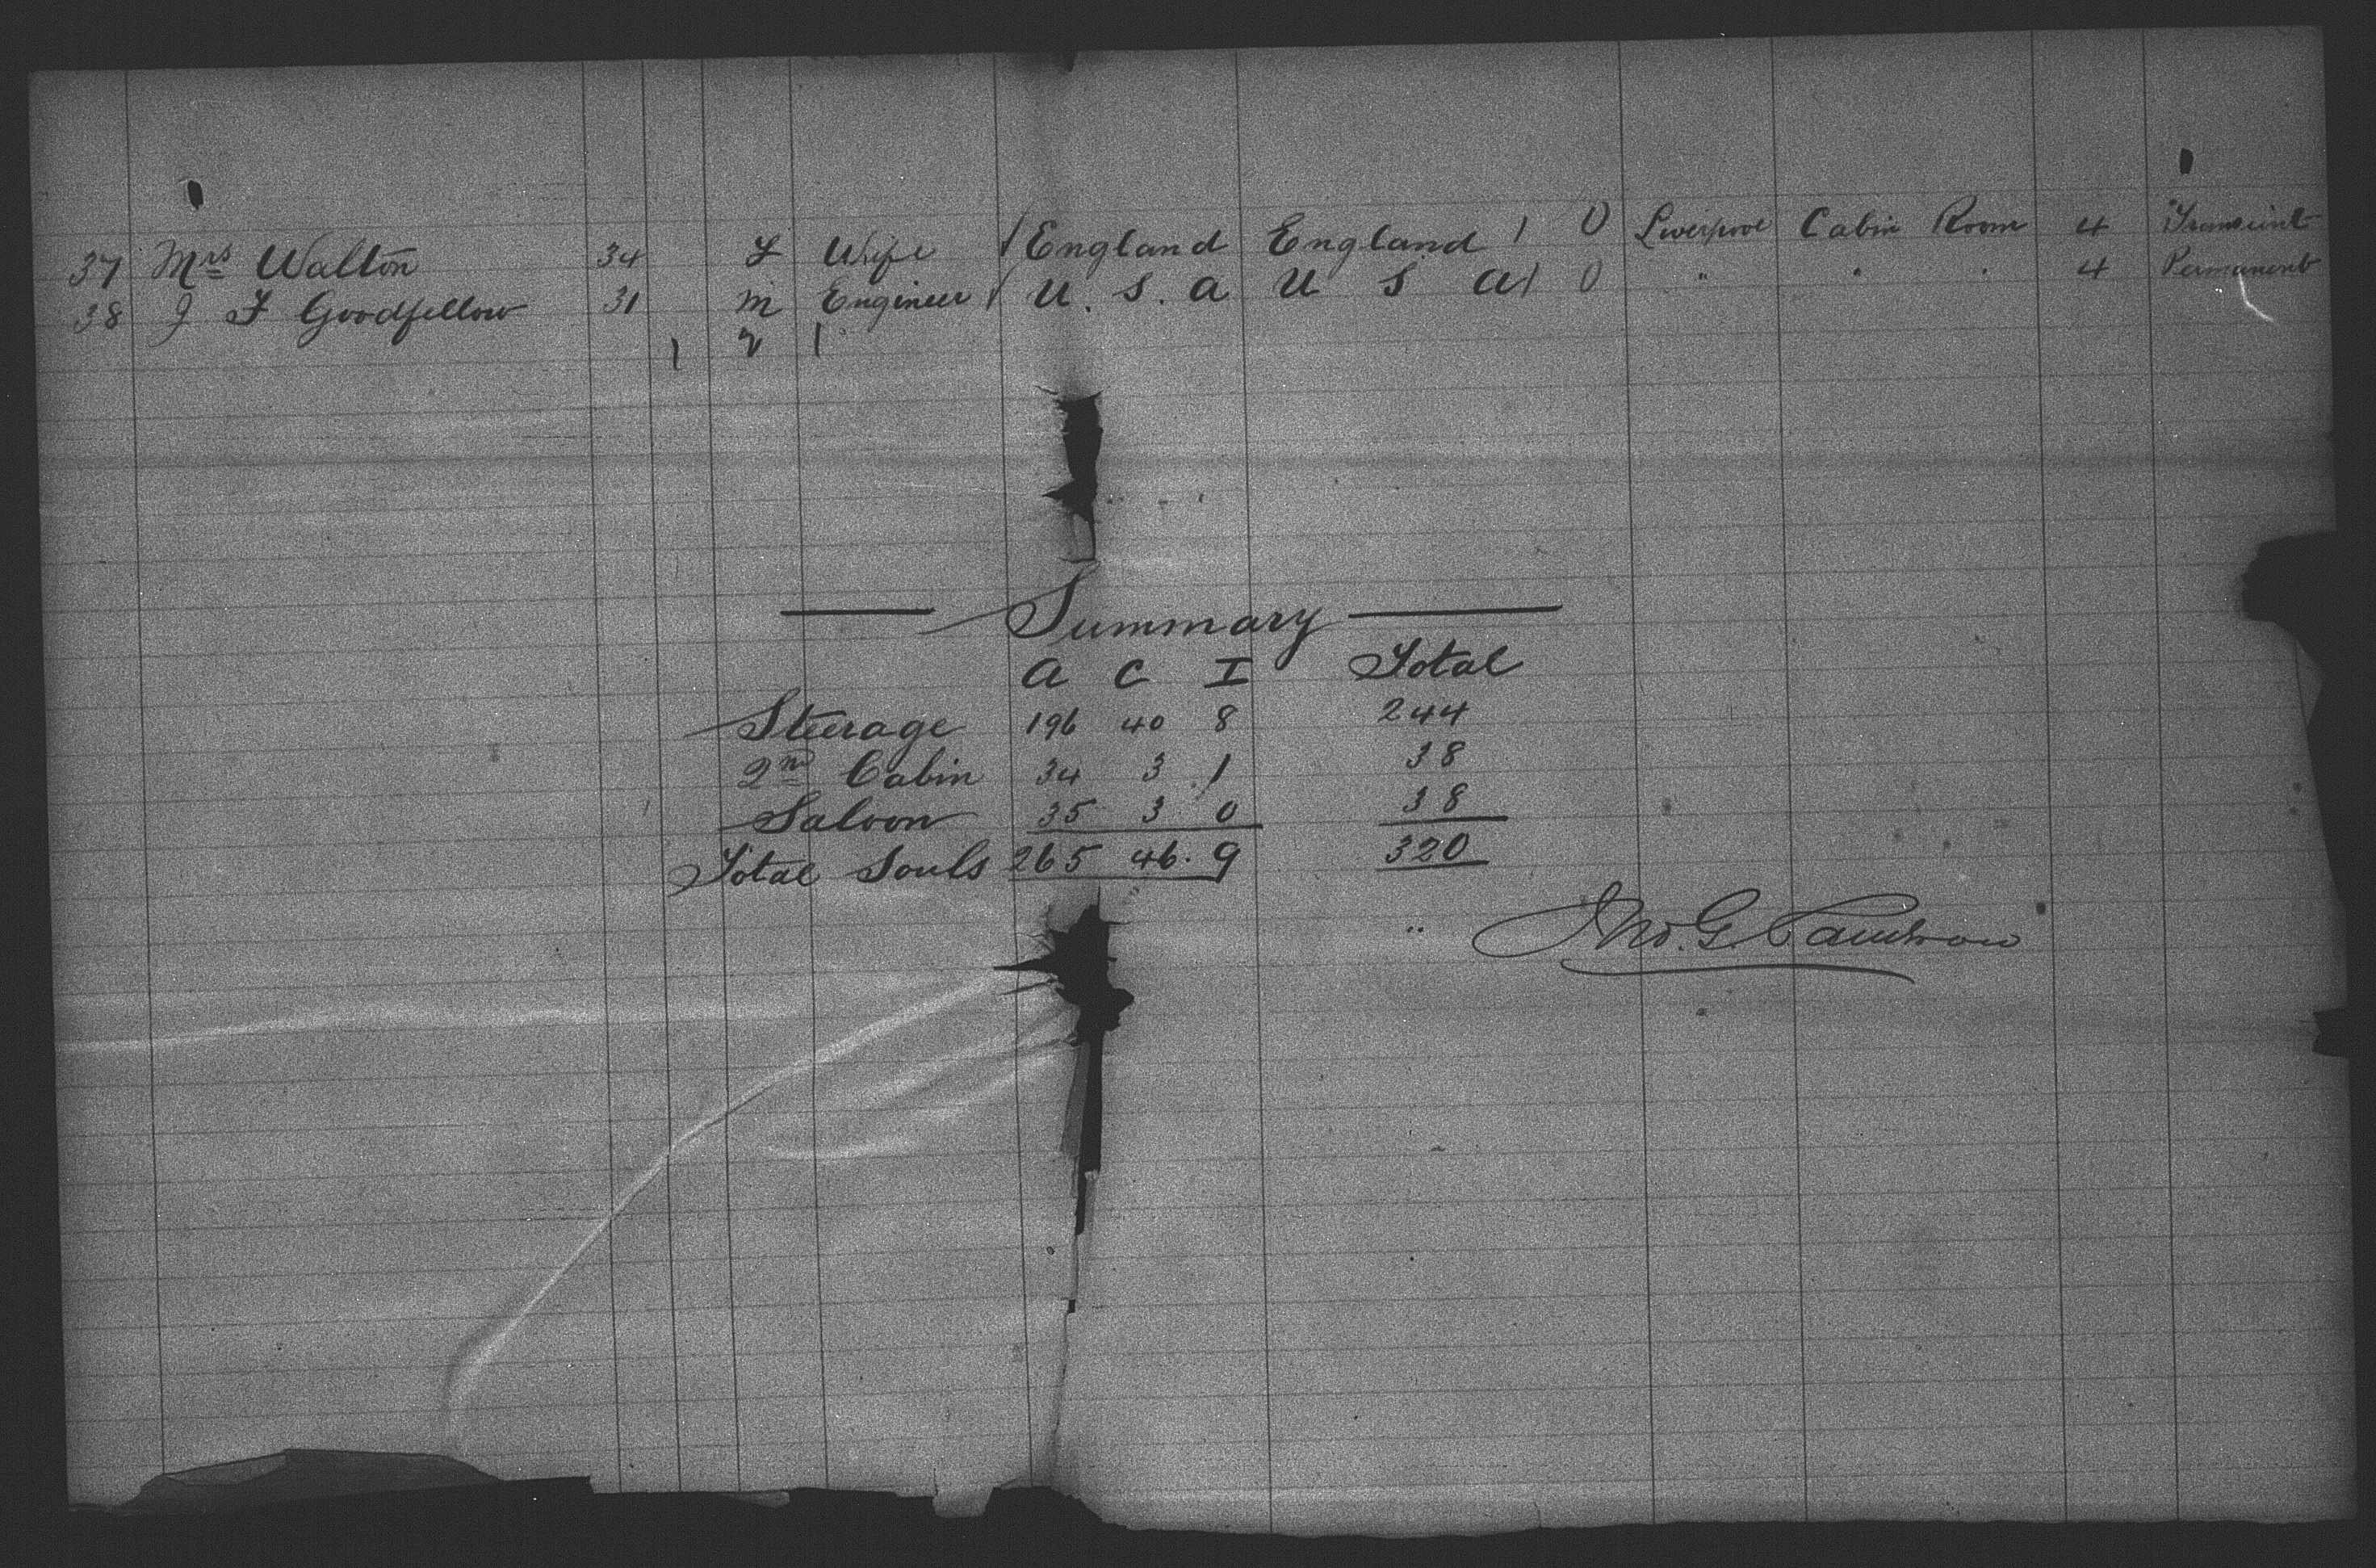 37 Mrs Walton 34 F Wife / England England 1 0 Liverpool Cabin Room 4 Transient
38 J F Goodfellow 31 m Engineer / U. S. A U S A / 0 " " " 4 Permanent
1 2 1
Summary
A C I Total
Steerage 196 40 8 244
2nd Cabin 34 3 1 38
Saloon 35 3 0 38
Total Souls 265 46. 9 320
Jno. G.